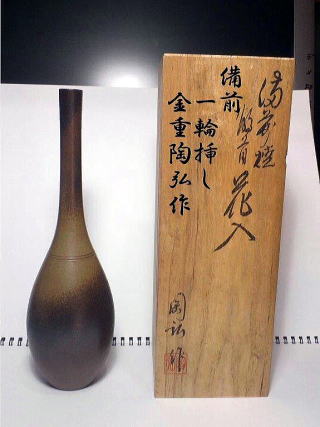 備前焼
花入
備前
一輪挿し
金重陶弘作
陶弘作